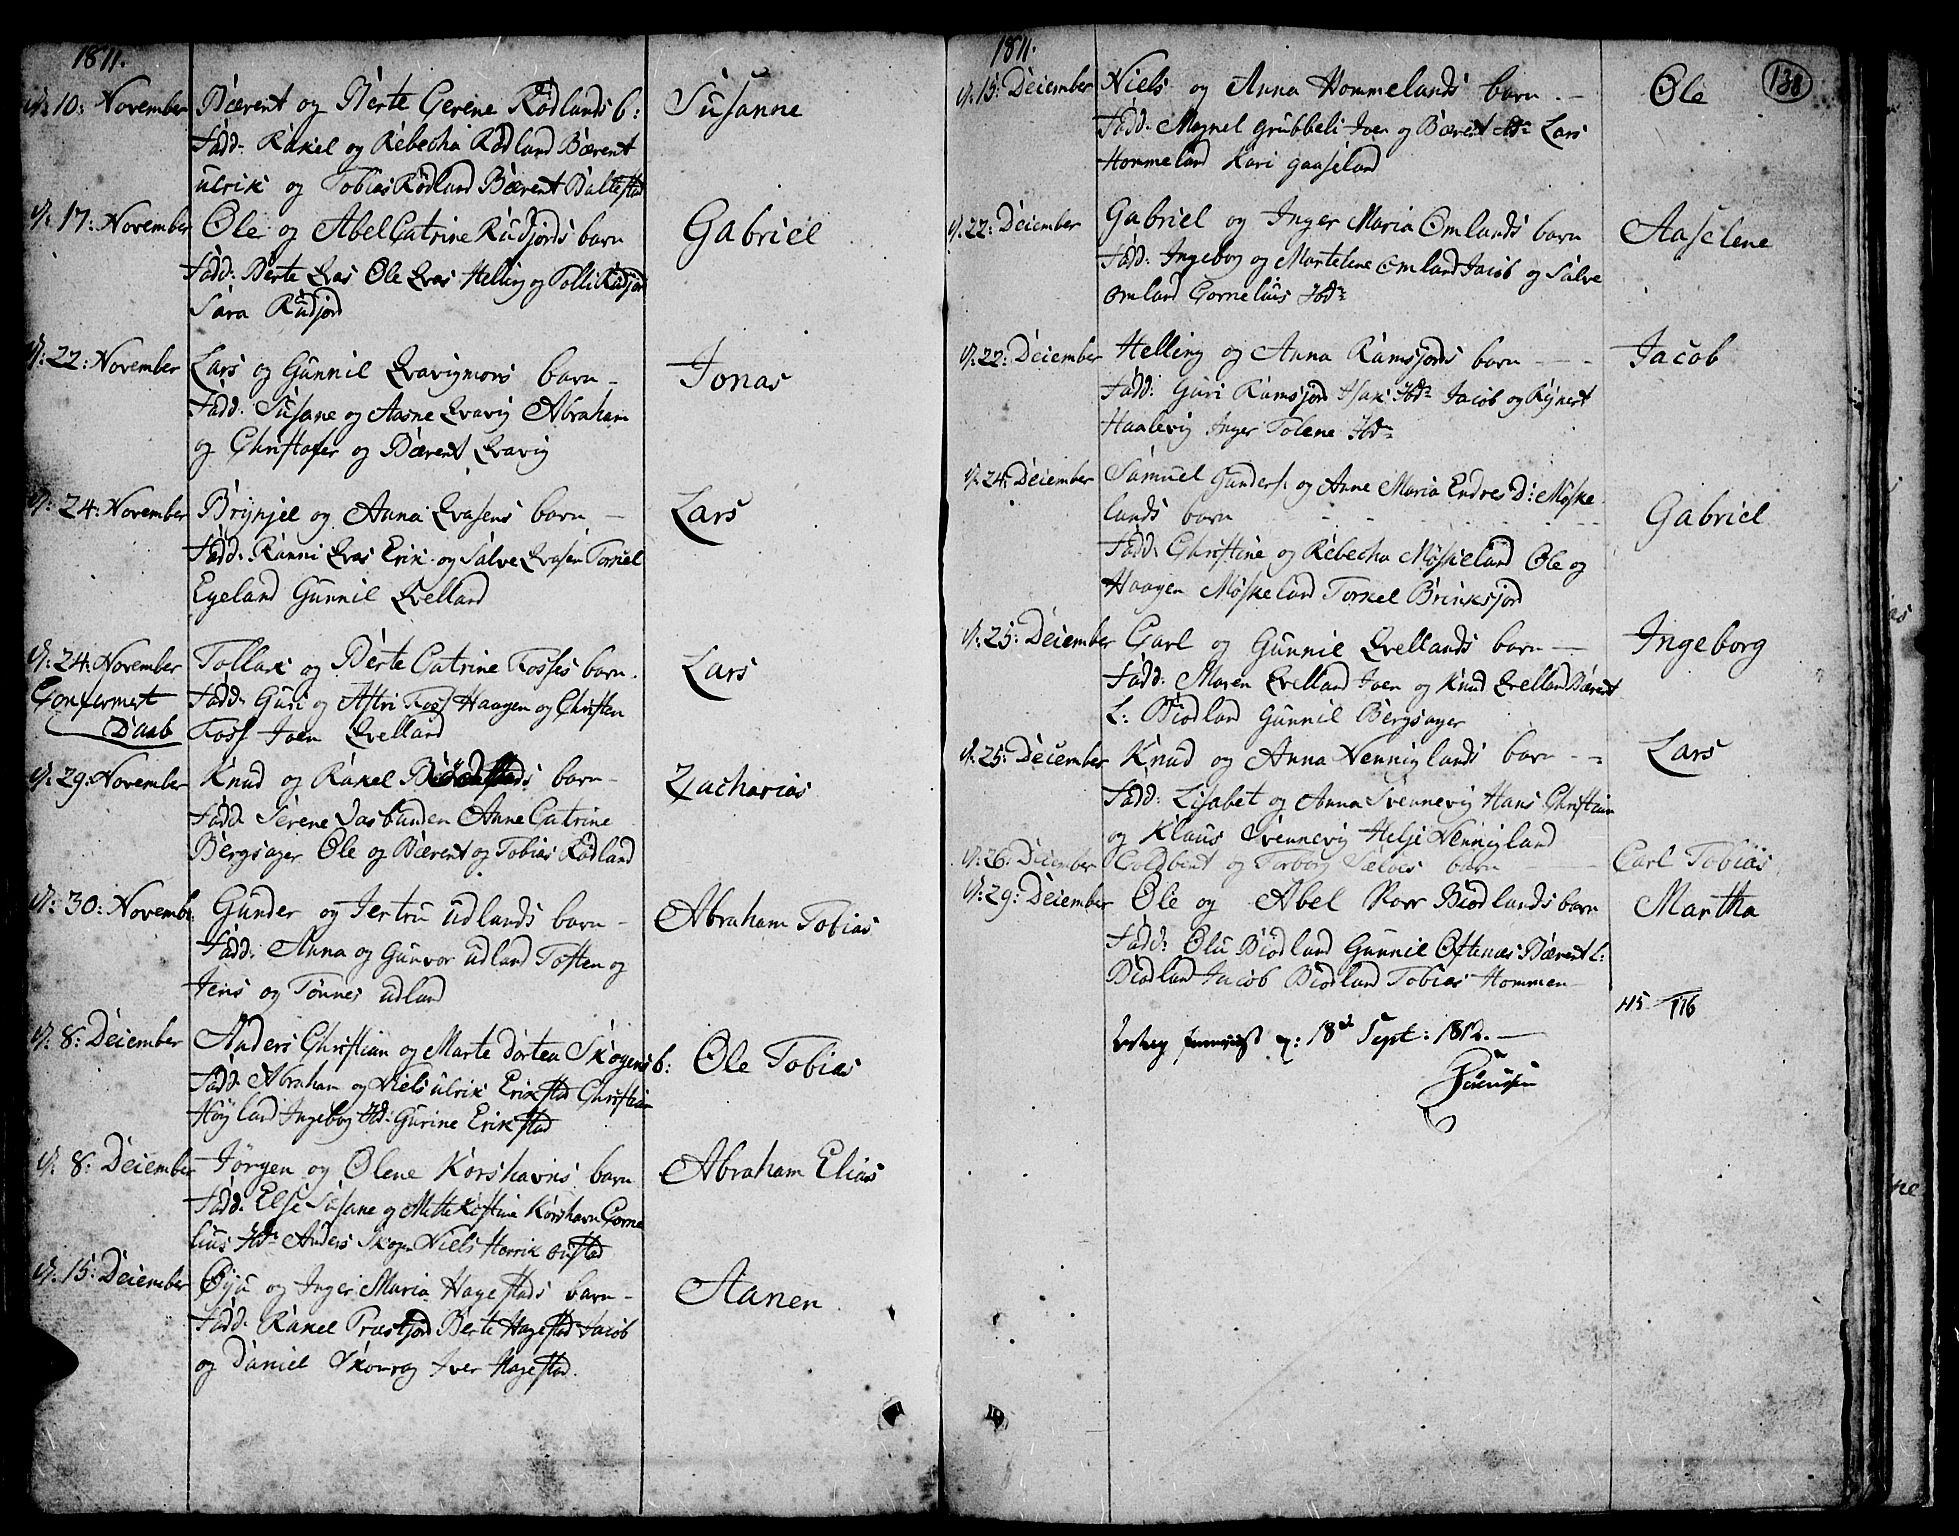 1811.
d: 10: November Bærent og Berte Cerene Rødlands b: Susanne
Fadd: Rakel og Rebecha Rødland Bærent
Ulrik og Tobias Rødland Bærent Baltestad
d: 17: November Ole og Abel Catrine Rudjords barn Gabriel
Fadd: Berte Qvas Ole Qvas Helling og Tolli Rudjor
Sara Rudjord
d: 22: November Lars og Gunnil Qvavigmors barn - Jonas
Fadd: Susane og Aasne Qvavig Abraham
og Christofer og Bærent Qvavig
d: 24: November Brynjel og Anna Qvasens barn - Lars
Fadd: Ranni Qvas Erik og Salve Qvasen Torkel
Egeland Gunnil Qvelland
d: 24: November Tollak og Berte Catrine Fosses barn. Lars
Confermert Fadd: Guri og Astri Foss Haagen og Christen
Daab Foss Joen Qvelland
d: 29: November Knud og Rakel barn - Zacharias
Fadd: Serene Aasbunden Anne Catrine
Bergsager Ole og Bærent og Tobias Rødland
d: 30: Novembr Gunder og Jertru Udlands barn - Abraham Tobias
Fadd: Anna og Gunvor Udland Tosten og
Jens og Tønnes Udland
d: 8: December Anders Christian og Marte Dortea Skogens b: Ole Tobias
Fadd: Abraham og Niels Ulrik Erikstad Christian
Høyland Ingeborg Ibd: Gurine Erikstad
d: 8: December Jørgen og Olene Korshavns barn Abraham Elias
Fadd: Else Susane og Mette Kistine Korshavn Corne
lius Ibd: Anders Skogen Niels Henrik
d: 15: December Øyu og Inger Maria Hagestads barn - Aanen
Fadd: Rakel Præstjord Berte Hagestad Jacob
og Daniel Skourog Iver Hagestad.
1811. 138
d: 15: December Niels og Anna Hommelands barn. - Ole
Fadd: Magnel Grubbeli Joen og Bærent Ibd: Lars
Hommeland Kari Gaaseland
d: 22: December Gabriel og Inger Maria Omlands barn Aaselene
Fadd: Ingeborg og Martelene Omland Jacob og Salve
Omland Cornelius Ibd:
d: 22: December Helling og Anna Ramsjords barn - - - Jacob
Fadd: Guri Ramsjord Isak Ibd: Jacob og Rejnert
Haalevig Inger Tolene Ibd:
d: 24: December Samuel Gunders: og Anne Maria Endres D: Møske
lands barn Gabriel
Fadd: Christine og Rebecha Møskeland Ole og
Haagen Møskeland Torkel Brinksjord
d: 25: December Carl og Gunnil Qvellands barn - Ingeborg
Fadd: Maren Qvelland Joen og Knud Qvelland Bærent
L: Biodland Gunnil Bergsager
d: 25: December Knud og Anna Venniglands barn - - Lars
Fadd: Lisabet og Anna Svennevig Hans Christian
og Klaus Svennevig Helje Vennigland
d: 26: December og Torborg barn Carl Tobias
d: 29: December Ole og Abel Biodlands barn Martha
Fadd: Olu Biodland Gunnil Oftenæs Bærent L:
Biodland Jacob Biodland Tobias Hommen
115 116
d: 18de Sept: 1812. -